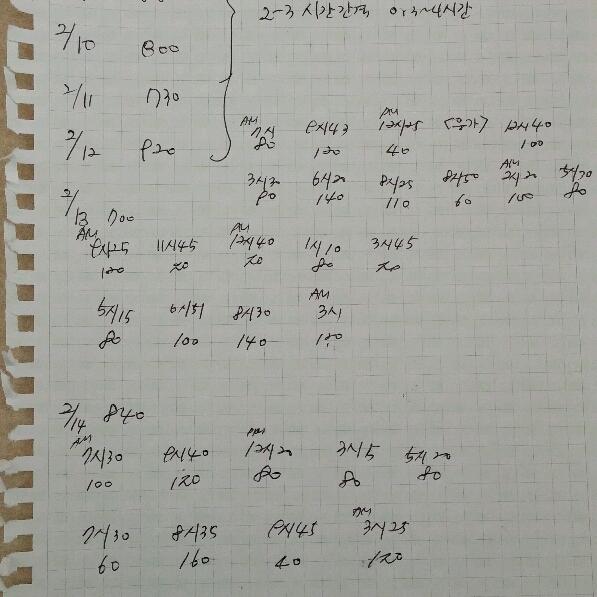 2-3 시간간격 0:3~4시간
2/10 800
2/11 730
2/12 920
AM 7시 9시43 PM 12시25 <응가> 12시40
80 120 40 100
3시30 6시20 8시25 8시50 AM 2시20 5시30
90 140 110 60 100 80
2/13 700
AM 9시25 11시45 PM 12시40 1시10 3시45
120 20 20 80 20
5시15 6시51 8시30 AM 3시
80 100 140 120
2/14 840
AM 7시30 9시40 PM 12시20 3시5 5시20
100 120 80 80 80
7시30 8시35 9시45 AM 3시25
60 160 40 120